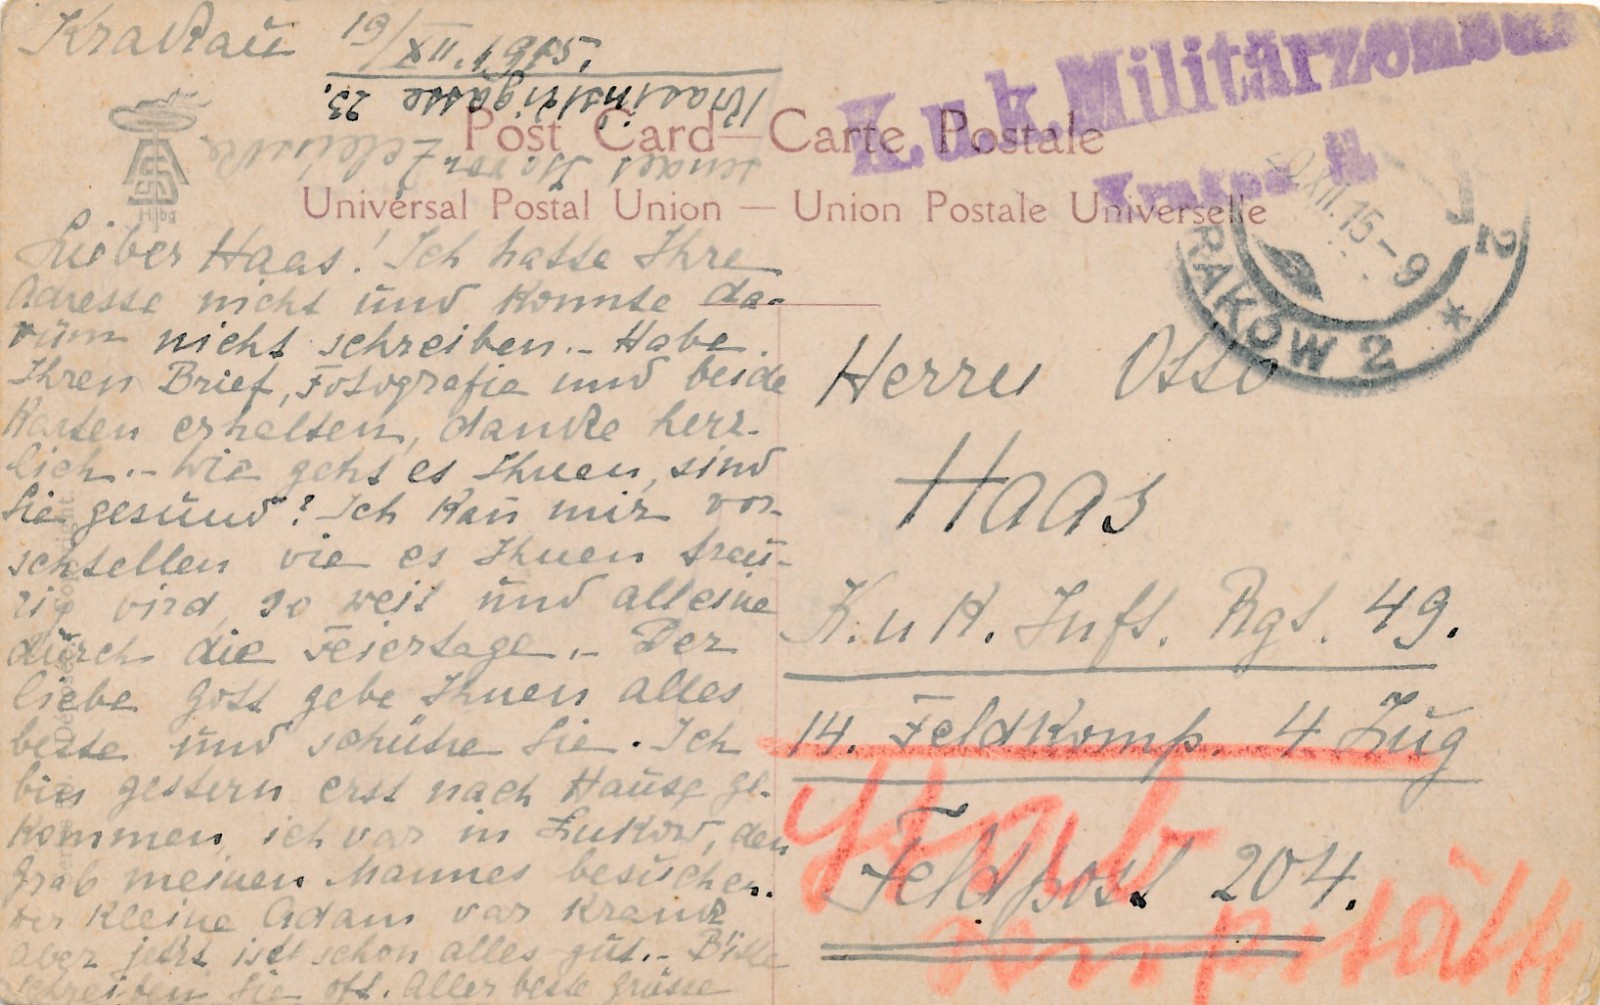 Krakau 19/XII. 1915.
Kraeinskigasse 23.
sendet H. von
Post Card—Carte Postale
Universal Postal Union — Union Postale Universelle
K.u.k. Militärzensur
KRAKÓW 2 *
XII.15-9
12
Hbg
Lieber Haas! Ich hatte Ihre
Adresse nicht und konnte da-
rüm nicht schreiben.- Habe
Ihren Brief, Fotografie und beide
Karten erhalten, danke herz-
lich.- Wie gehts es Ihnen, sind
Sie gesund? Ich kan̄ mir vor-
schtellen vie es Ihnen trau-
rig vird, so weit und alleine
durch die Feiertage.- Der
liebe Gott gebe Ihnen alles
beste und schütze Sie. Ich
bin gestern erst nach Hause ge-
kommen, ich var in Lukow, den
Grab meinen Mannes besuchen.
Der kleine Adam var krank
aber jetzt ist schon alles gut.- Bitte
schreiben Sie oft. Aller beste Grüsse
Herrn Otto
Haas
K.u K. Inft. Rgt. 49.
14. Feldkomp. 4 Zug
Feldpost 204.